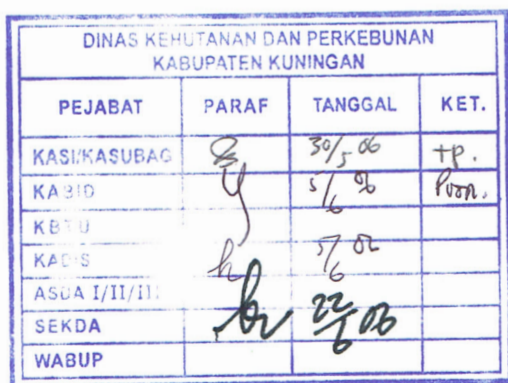 DINAS KEHUTANAN DAN PERKEBUNAN
KABUPATEN KUNINGAN
PEJABAT PARAF TANGGAL KET.
KASI/KASUBAG 30/5 06 tp.
KABID 5/6 06
KBTU
KADIS 5/6 06
ASDA I/II/III
SEKDA 22/6 06
WABUP